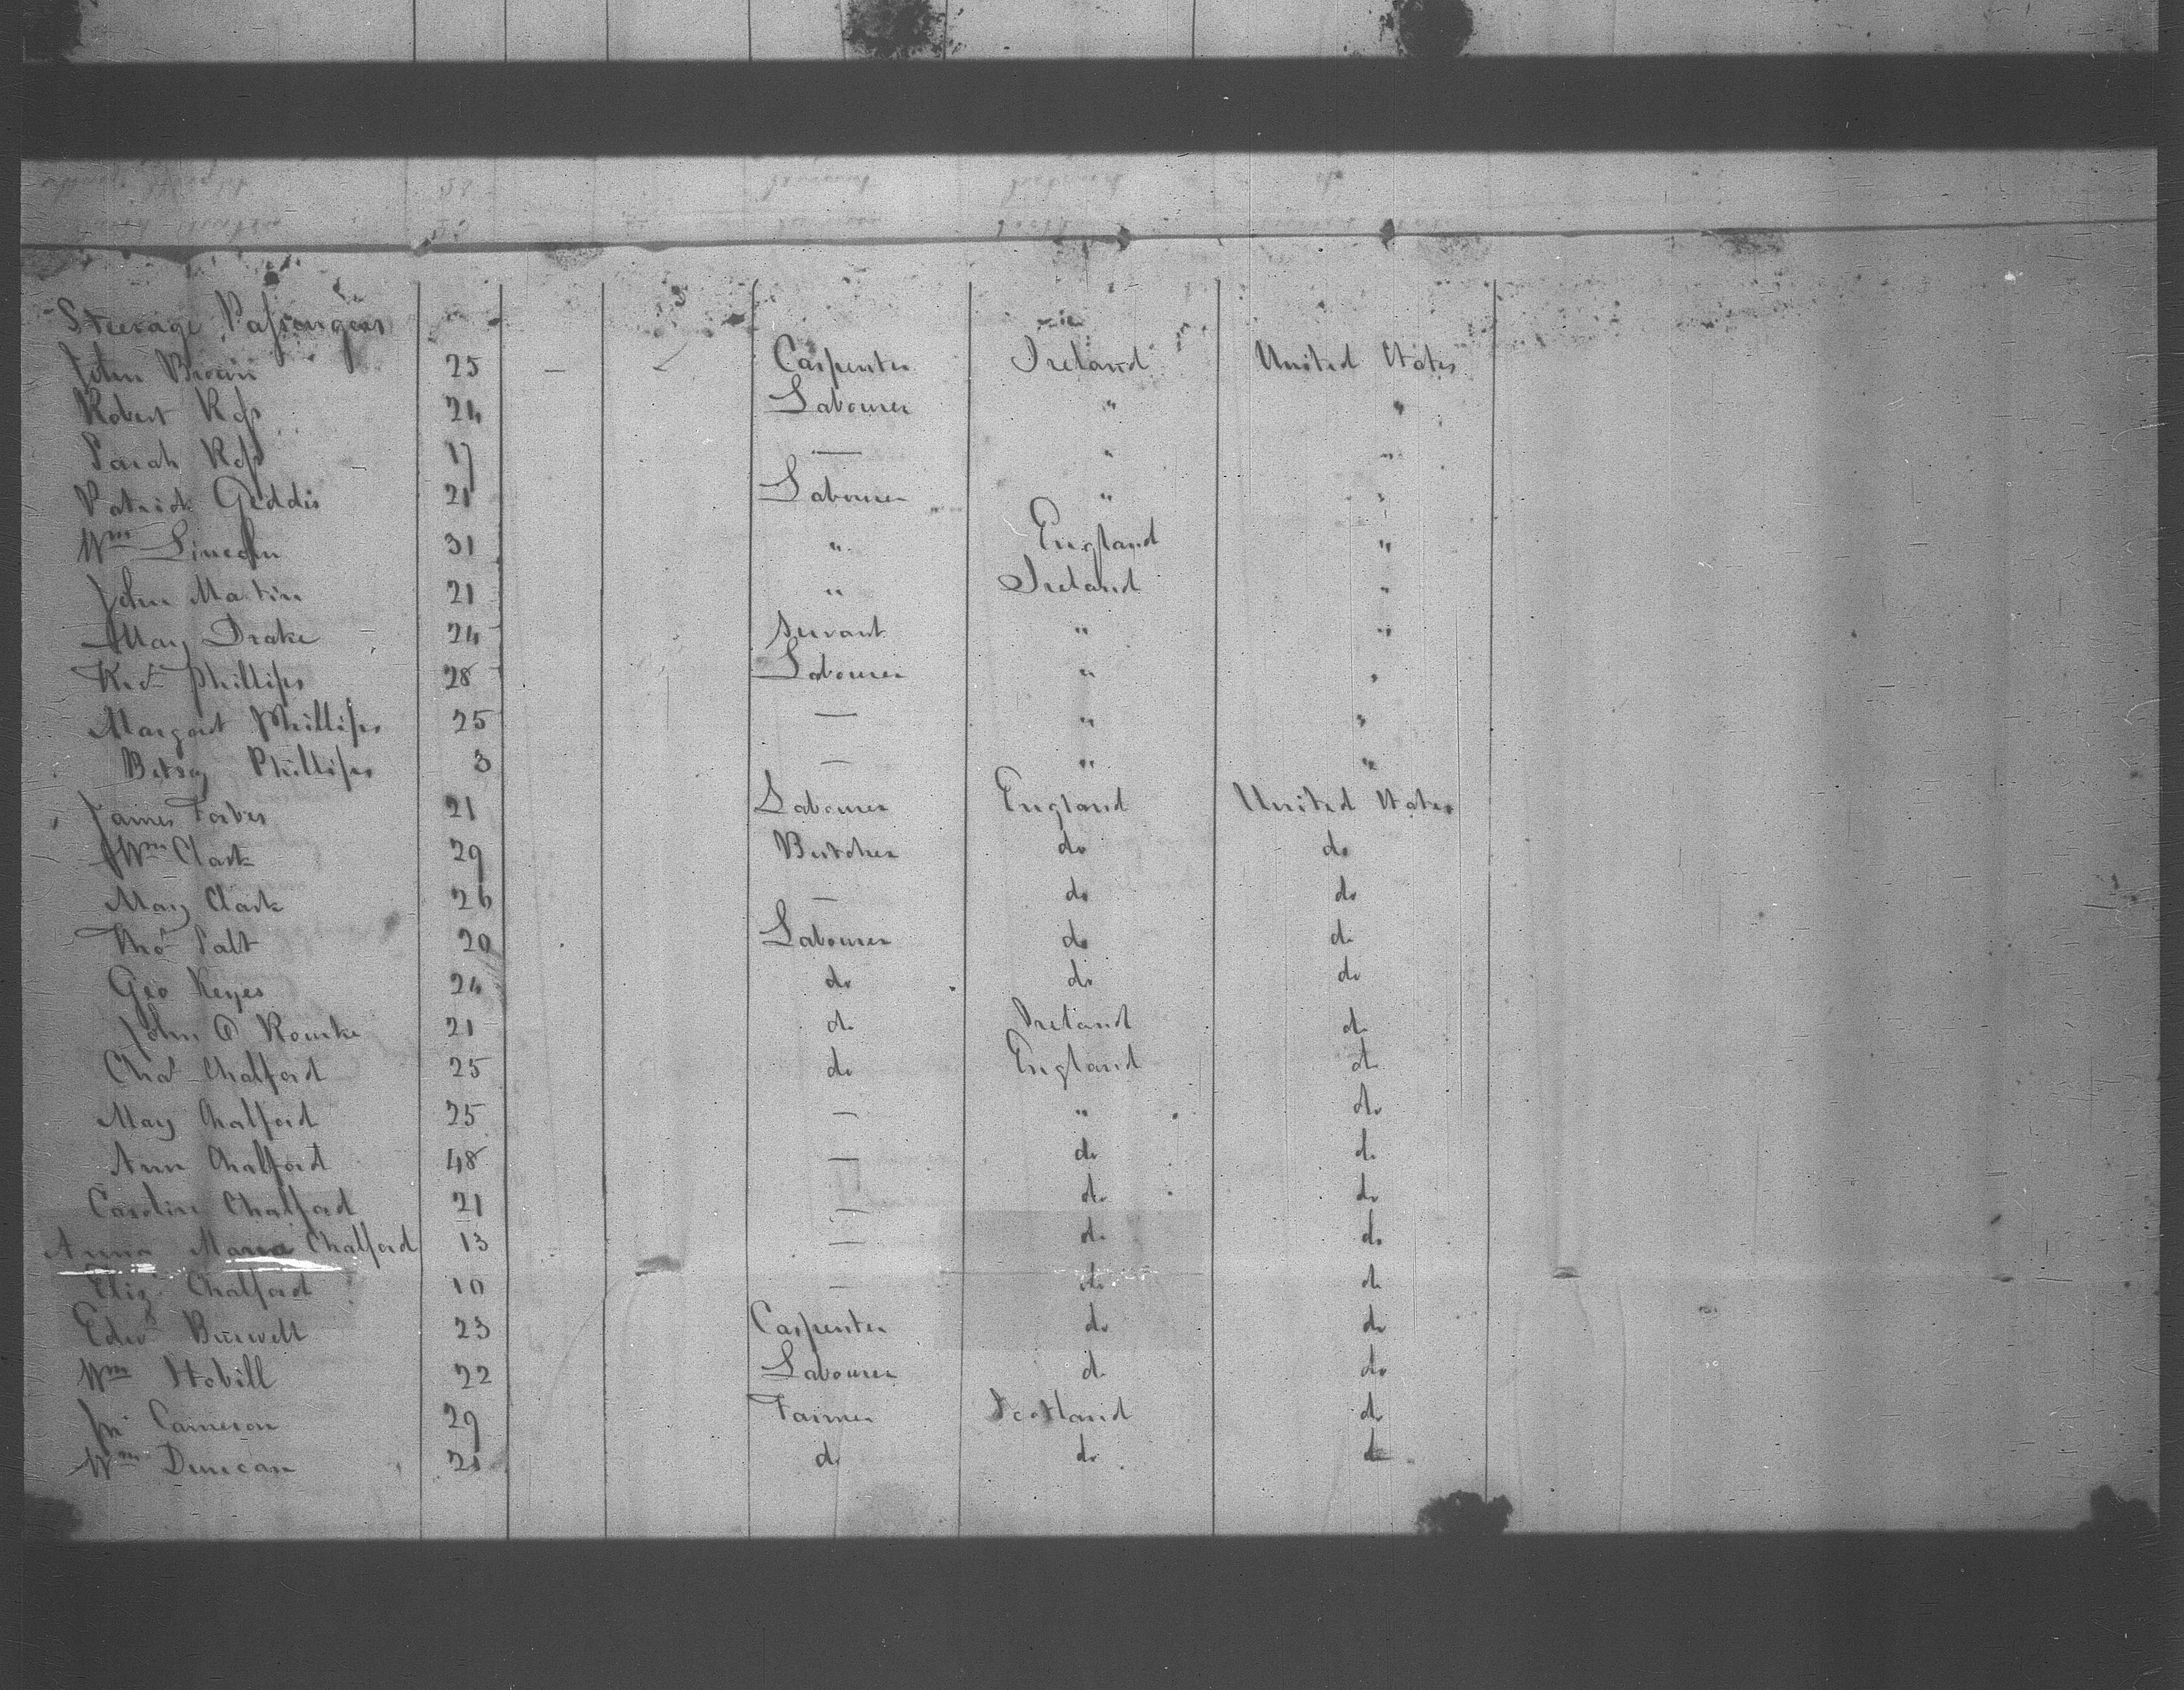 Steerage Passengers
John Brown 25 — Carpenter Ireland United States
Robert Ross 24 Labourer " "
Sarah Ross 17 — " "
Patrick Geddis 21 Labourer " "
Wm Lincoln 31 " England "
John Martin 21 " Ireland "
Mary Drake 24 Servant " "
Rd Phillips 28 Labourer " "
Margaret Phillips 25 — " "
Betsy Phillips 3 — " "
James Forbes 21 Labourer England United States
Wm Clark 29 Butcher do do
Mary Clark 26 — do do
Thos Salt 20 Labourer do do
Geo Keyes 24 do do do
John O Rourke 21 do Ireland do
Chas Chalford 25 do England do
Mary Chalford 25 — " do
Ann Chalford 48 — do do
Caroline Chalford 21 — do do
Anna Maria Chalford 13 — do do
Eliz Chalford 10 — do do
Edwd Burwell 23 Carpenter do do
Wm Hobill 22 Labourer do do
Cameron 29 Farmer Scotland do
Wm Duncan 21 do do do